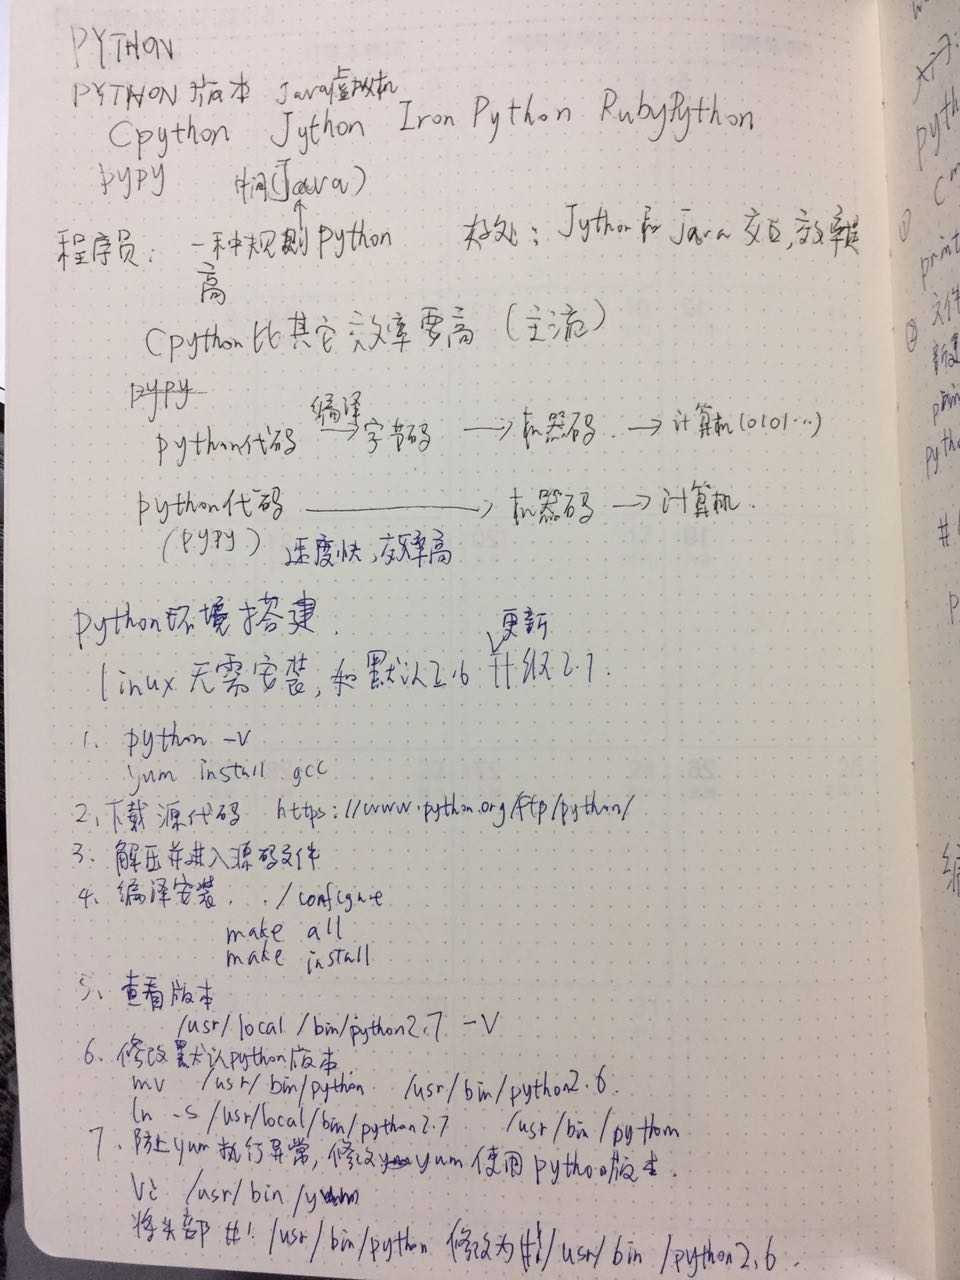 PYTHON
PYTHON 版本 Java虚拟机
Cpython Jython Iron Python RubyPython
pypy 中间(Java)
程序员: 一种规则python 好处: Jython和java交互,效率提
高
Cpython比其它效率要高 (主流)
pypy
编译
python代码 → 字节码 → 机器码 → 计算机(0101…)
python代码 → 机器码 → 计算机.
(pypy) 速度快,效率高
python环境搭建.
更新
linux 无需安装, 如默认2.6 升级2.7.
1. python -v
yum install gcc
2、下载源代码 https://www.python.org/ftp/python/
3. 解压并进入源码文件
4. 编译安装. ./configue
make all
make install
5、查看版本
/usr/local/bin/python2.7 -V
6. 修改默认python版本
mv /usr/bin/python /usr/bin/python2.6.
ln -s /usr/local/bin/python2.7 /usr/bin/python
7. 防止yum执行异常, 修改 yum 使用python版本.
Vi /usr/bin/yum
将头部 #! /usr/bin/python 修改为 #!/usr/bin/python2.6.
print
文件
新建